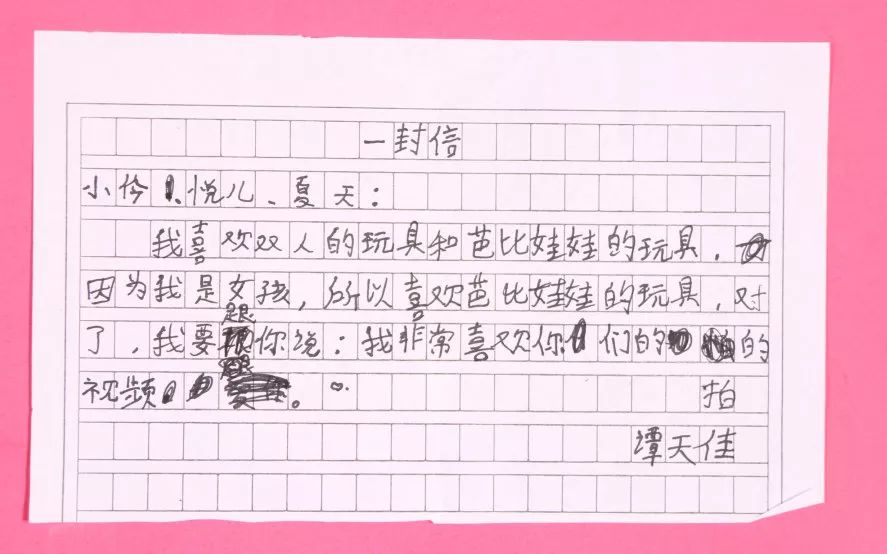 一封信
小伶、悦儿、夏天:
我喜欢双人的玩具和芭比娃娃的玩具,
因为我是女孩,所以喜欢芭比娃娃的玩具,对
了,我要跟你说:我非常喜欢你们的拍的
视频。
谭天佳